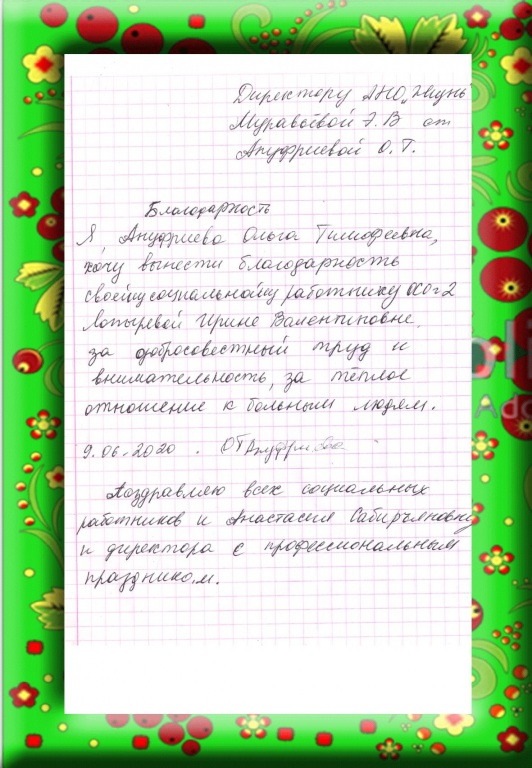 Директору АНО „Жизнь
Муравьёвой Э. В от
Ануфриевой О. Т.
Благодарность
Я, Ануфриева Ольга Тимофеевна,
хочу вынести благодарность
своему социальному работнику ОСО г 2
Лопыревой Ирине Валентиновне,
за добросовестный труд и
внимательность, за тёплое
отношение к больным людям.
9.06.2020. ОТАнуфриева
Поздравляю всех социальных
работников и Анастасия Сабирьяновну
и директора с профессиональным
праздником.